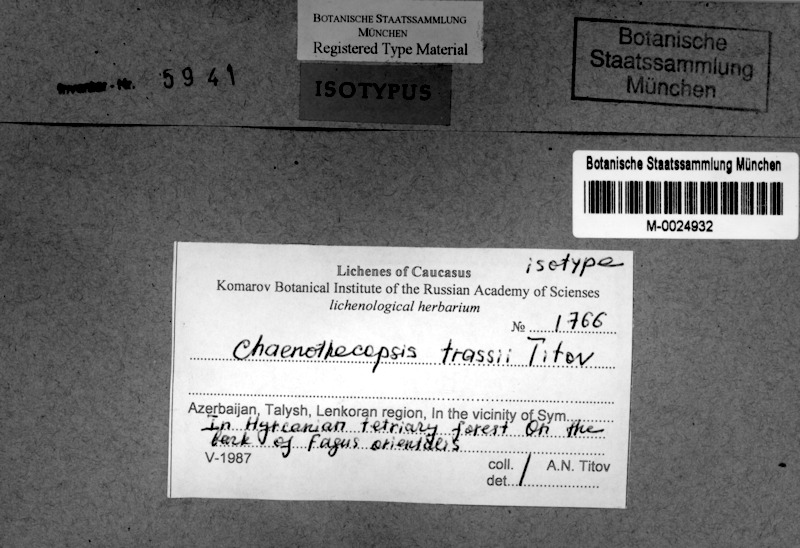 BOTANISCHE STAATSSAMMLUNG
MÜNCHEN
Registered Type Material
ISOTYPUS
Inventar-Nr. 5941
Botanische
Staatssammlung
München
Botanische Staatssammlung München
M-0024932
isotype
Lichenes of Caucasus
Komarov Botanical Institute of the Russian Academy of Scienses
lichenological herbarium
№ 1766
Chaenothecopsis trassii Titov
Azerbaijan, Talysh, Lenkoran region, In the vicinity of Sym
In Hyrcanian tetriary forest On the
bark of Fagus orientalis
V-1987
coll. / A.N. Titov
det.